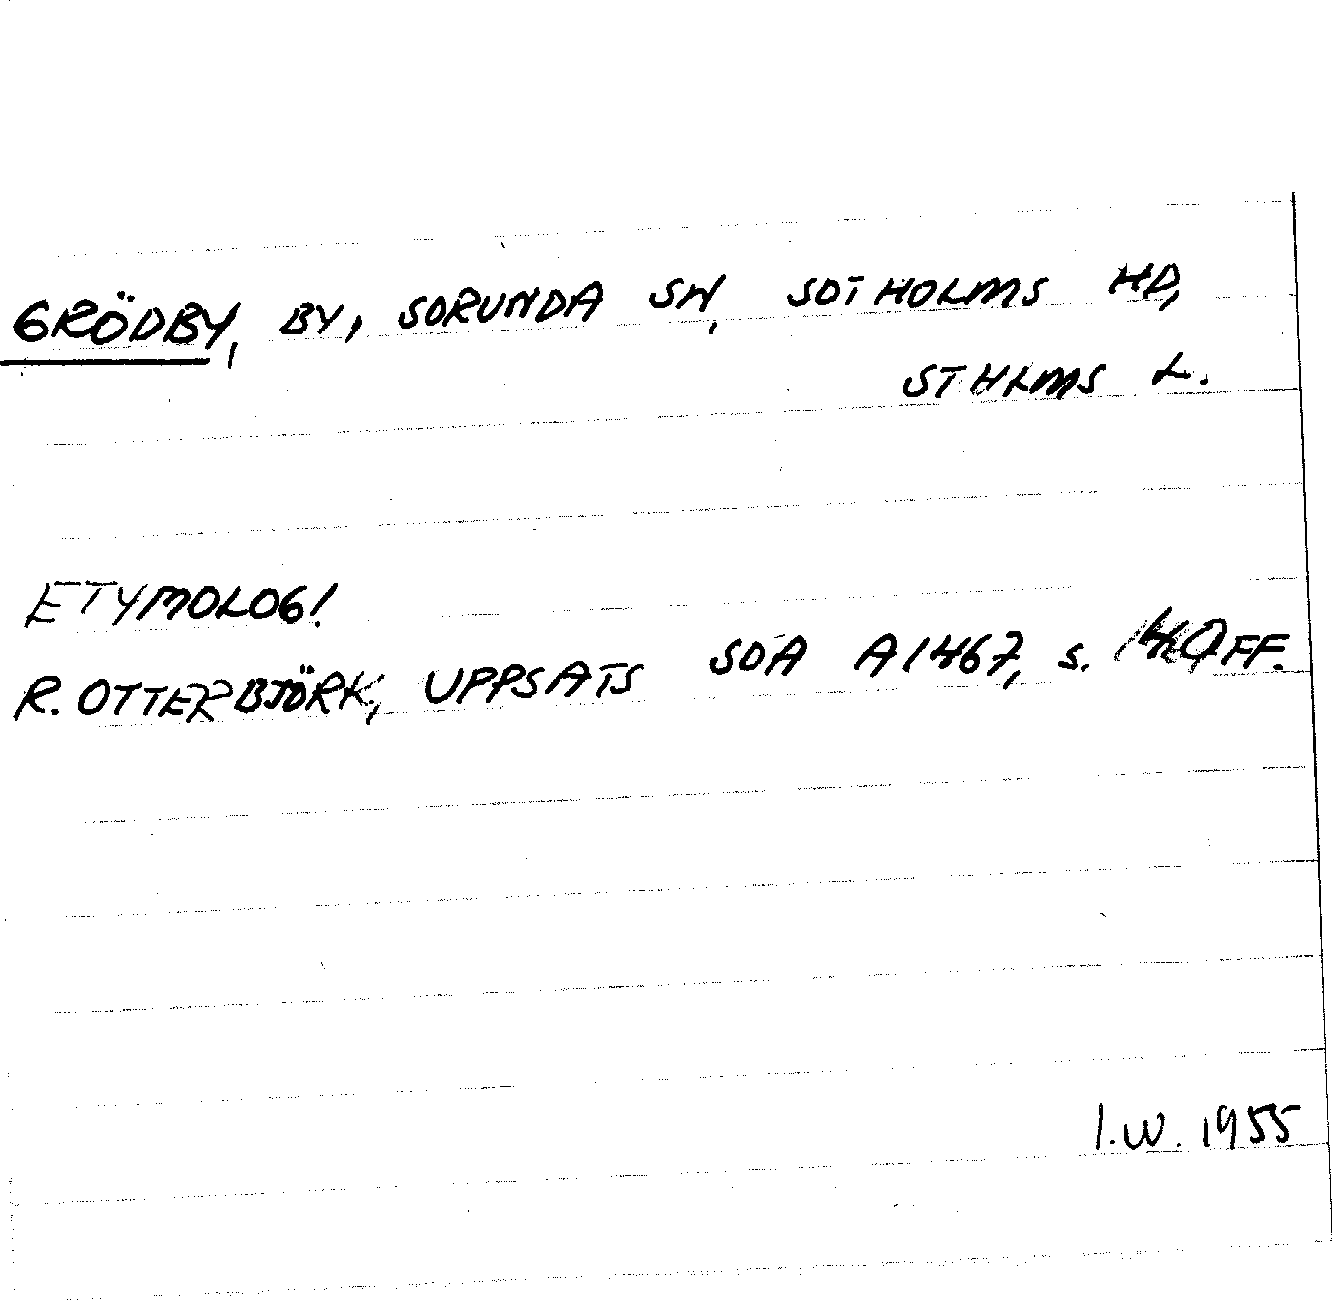 GRÖDBY, BY, SORUNDA SN, SOTHOLMS HD,
STHLMS L.
ETYMOLOGI
R. OTTERBJÖRK, UPPSATS SOA A1467, s. FF.
I.W. 1955